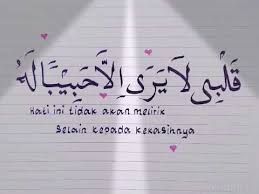 قَلْبِى لَا يَرَى إِلَّا حَبِيْبًا لَهُ
Hati ini tidak akan melirik
Selain kepada kekasihnya